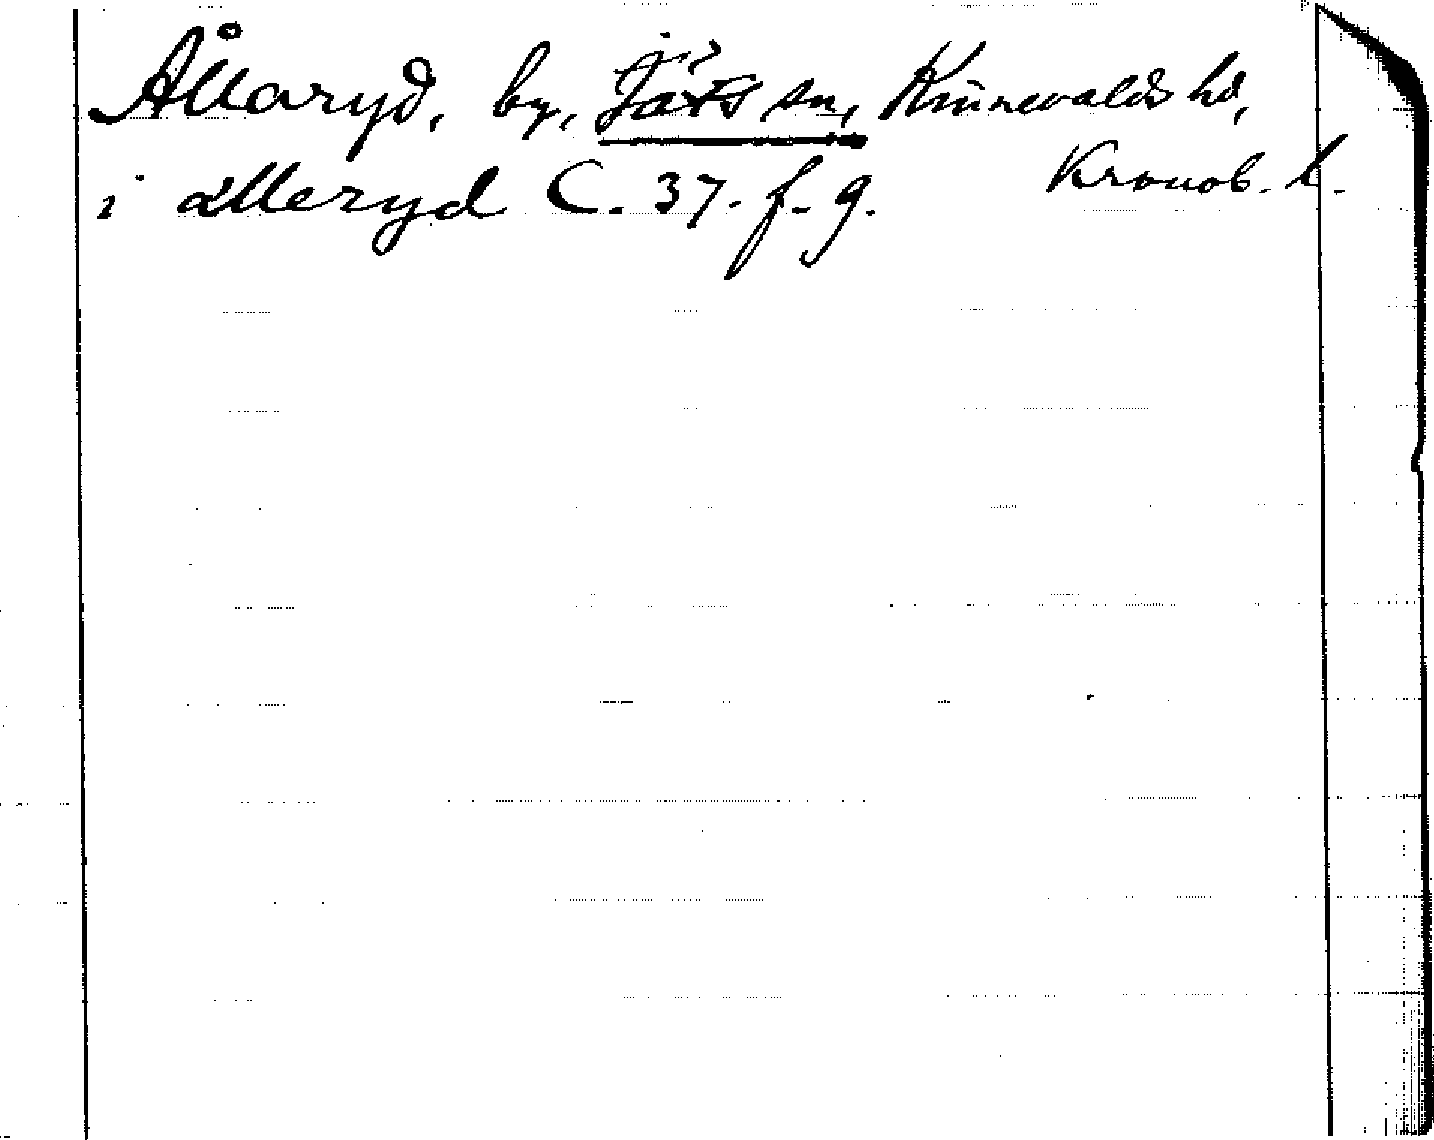 Ållaryd, by, Jäts sn, Kinnevalds hd,
Kronob. l.
i alleryd C. 37. f. 9.